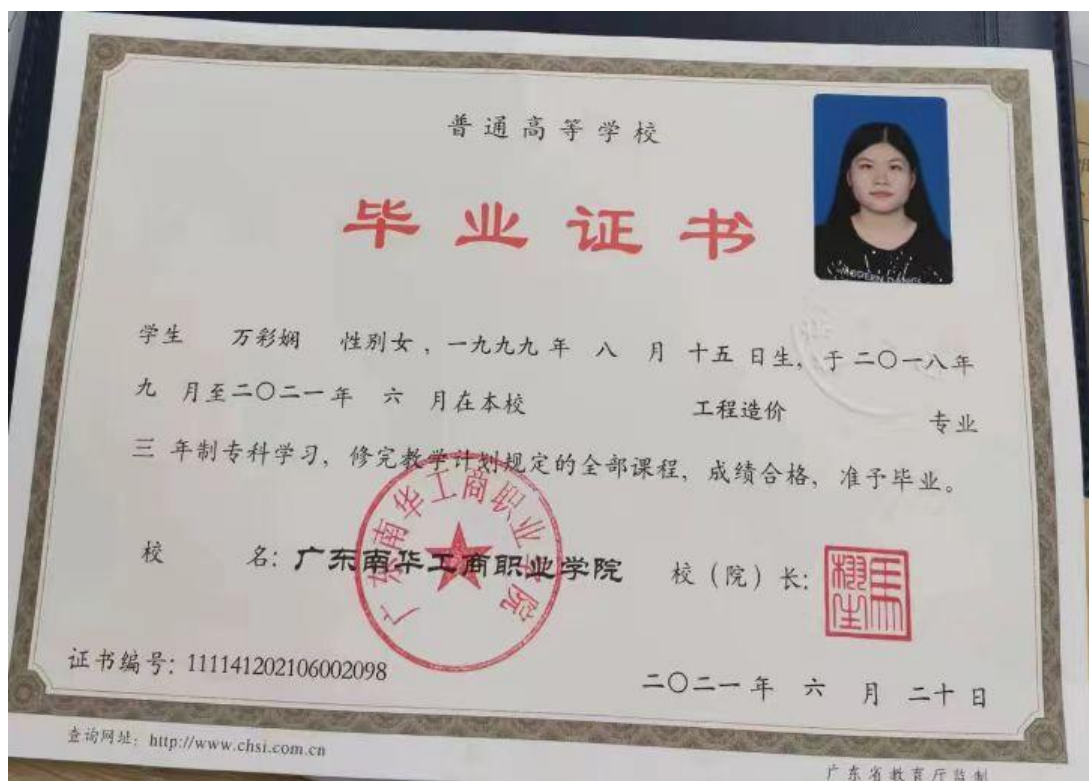 普通高等学校
毕业证书
MODERN DANCE
学生 万彩娴 性别女，一九九九年 八 月 十五 日生，于二〇一八年
九 月至二〇二一年 六 月在本校 工程造价 专业
三 年制专科学习，修完教学计划规定的全部课程，成绩合格，准予毕业。
校 名：广东南华工商职业学院 校（院）长：
广东南华工商职业学院
证书编号：111141202106002098
二〇二一年 六 月 二十 日
查询网址：http://www.chsi.com.cn
广东省教育厅监制